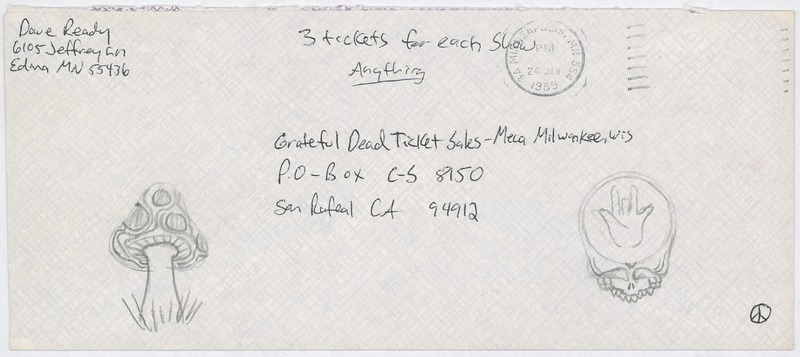 Dave Ready
6105 Jeffrey Ln
Edina MN 55436
3 tickets for each show
Anything
MINNEAPOLIS, MN 554
PM
24 JAN
1989
Grateful Dead Ticket Sales - Meca Milwaukee, Wis
P.O - Box C-S 8150
San Rafeal CA 94912